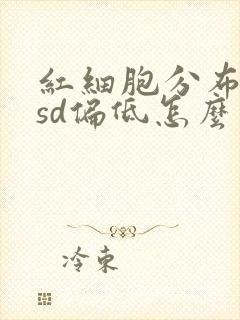 紅細胞分布
sd偏低怎麼
冷束